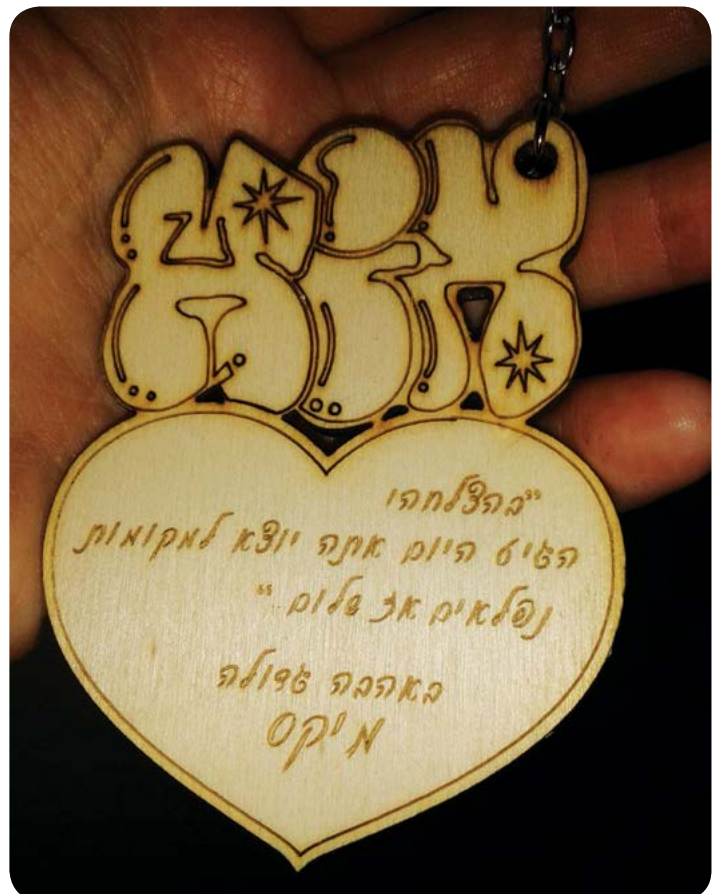 "בהצלחה!
הגיע היום אתה יוצא למקומות
נפלאים אז שלום"
באהבה גדולה
מיקס